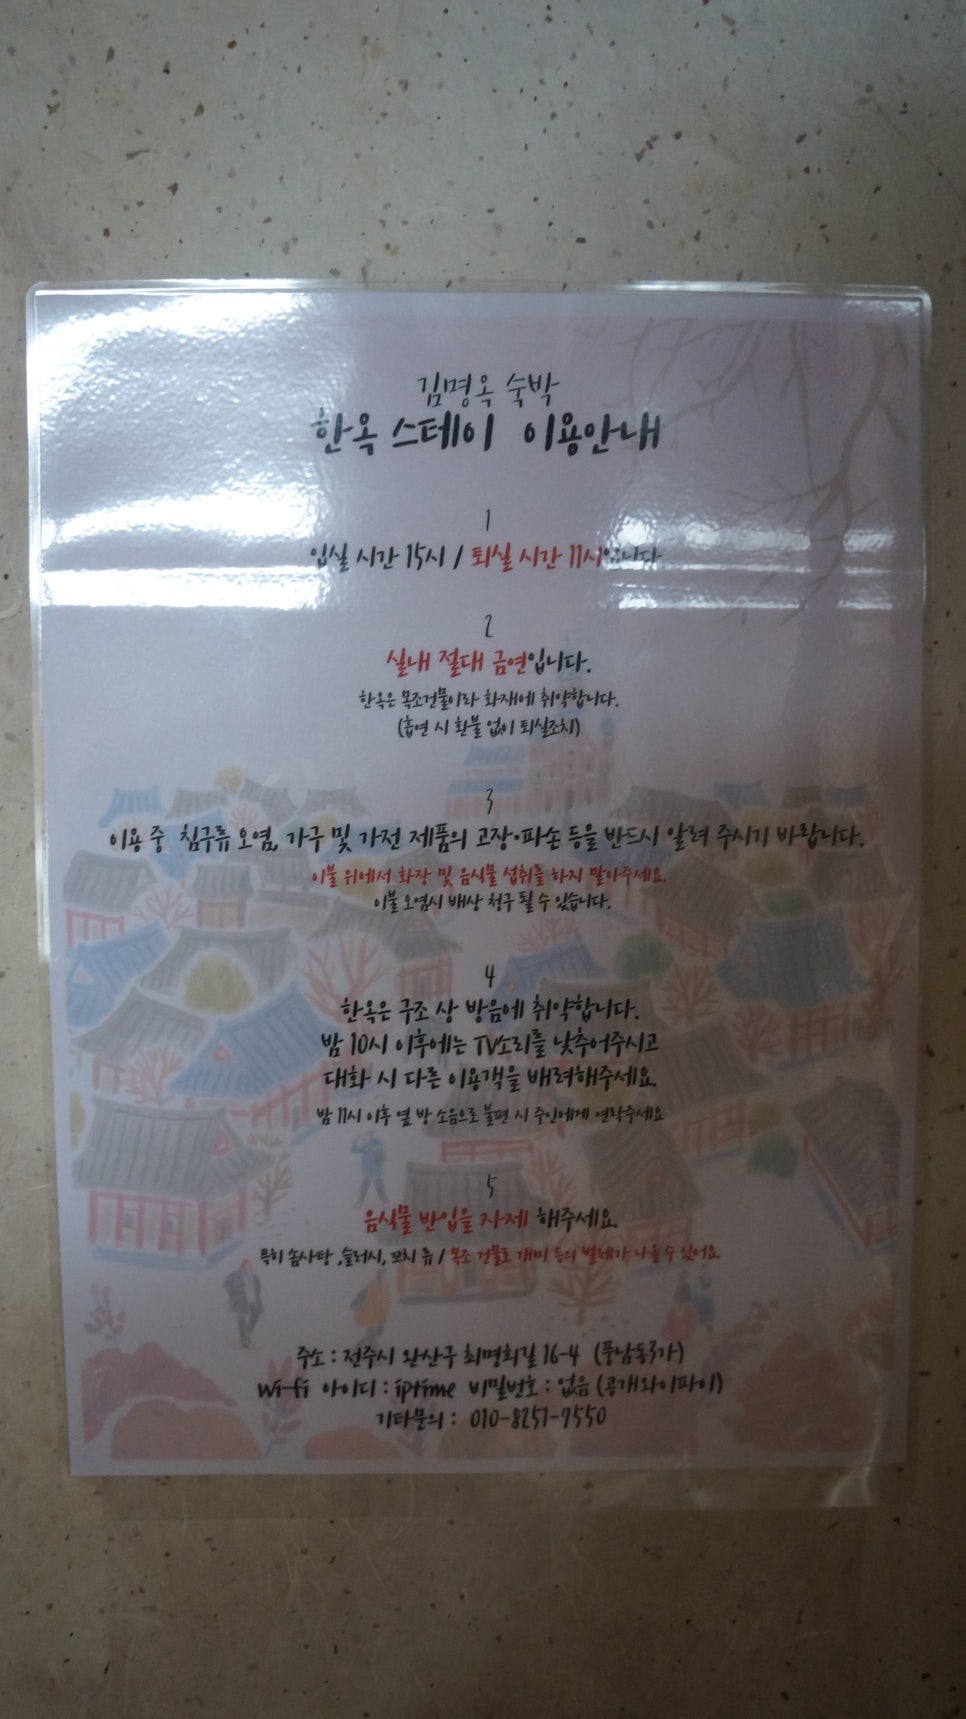 김명옥 숙박
한옥 스테이 이용안내
1
입실 시간 15시 / 퇴실 시간 11시입니다
2
실내 절대 금연입니다.
한옥은 목조건물이라 화재에 취약합니다.
(흡연 시 환불 없이 퇴실조치)
3
이용 중 침구류 오염, 가구 및 가전 제품의 고장·파손 등을 반드시 알려 주시기 바랍니다.
이불 위에서 화장 및 음식물 섭취를 하지 말아주세요.
이불 오염시 배상 청구 될 수 있습니다.
4
한옥은 구조 상 방음에 취약합니다.
밤 10시 이후에는 TV소리를 낮추어주시고
대화 시 다른 이용객을 배려해주세요.
밤 11시 이후 옆 방 소음으로 불편 시 주인에게 연락주세요
5
음식물 반입을 자제 해주세요.
특히 솜사탕 ,슬러시, 꼬치 류 / 목조 건물로 개미 등의 벌레가 나올 수 있어요.
주소 : 전주시 완산구 최명희길 16-4 (풍남동3가)
Wi-fi 아이디 : iptime 비밀번호 : 없음 (공개와이파이)
기타문의 : 010-8251-7550